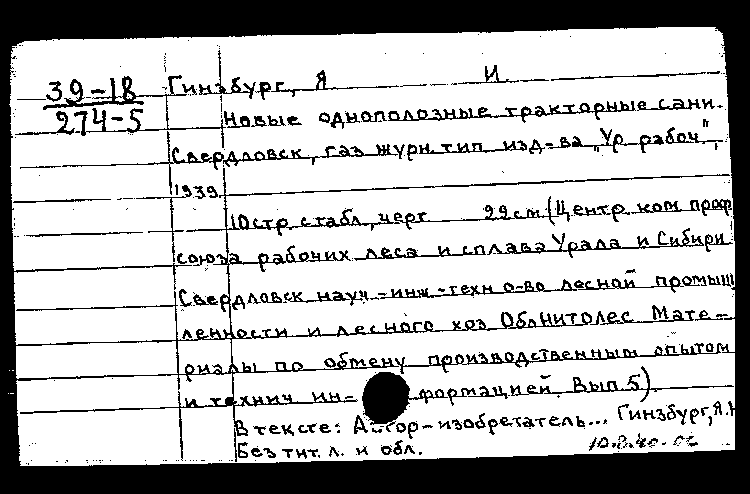 39-18
274-5
Гинзбург, Я. И.
Новые однополозные тракторные сани.
Свердловск, газ журн тип изд-ва "Ур рабоч",
1939.
10 стр с табл, черт 22 см (Центр ком проф
союза рабочих леса и сплава Урала и Сибири
Свердловск науч-инж-техн о-во лесной промыш
ленности и лесного хоз ОблНитолес Мате-
риалы по обмену производственным опытом
и технич ин- формацией. Вып 5).
В тексте: Автор-изобретатель... Гинзбург, Я.И
Без тит. л. и обл.